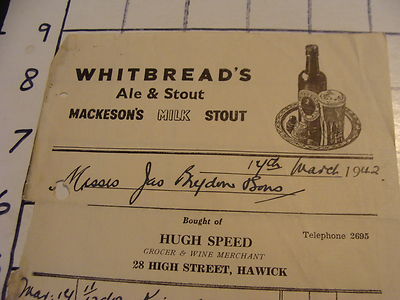 9
8
7
WHITBREAD'S
Ale & Stout
MACKESON'S MILK STOUT
14th March 1942
Messrs Jas Brydon & Sons
Bought of
HUGH SPEED
Telephone 2695
GROCER & WINE MERCHANT
28 HIGH STREET, HAWICK
Mar. 14